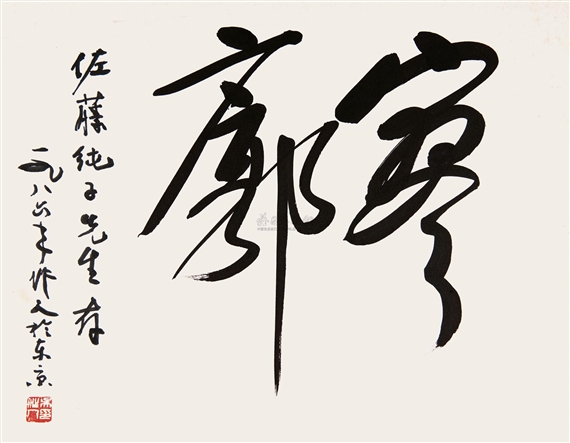 寥廓
佐藤纯子先生存
一九八六年作人於东京